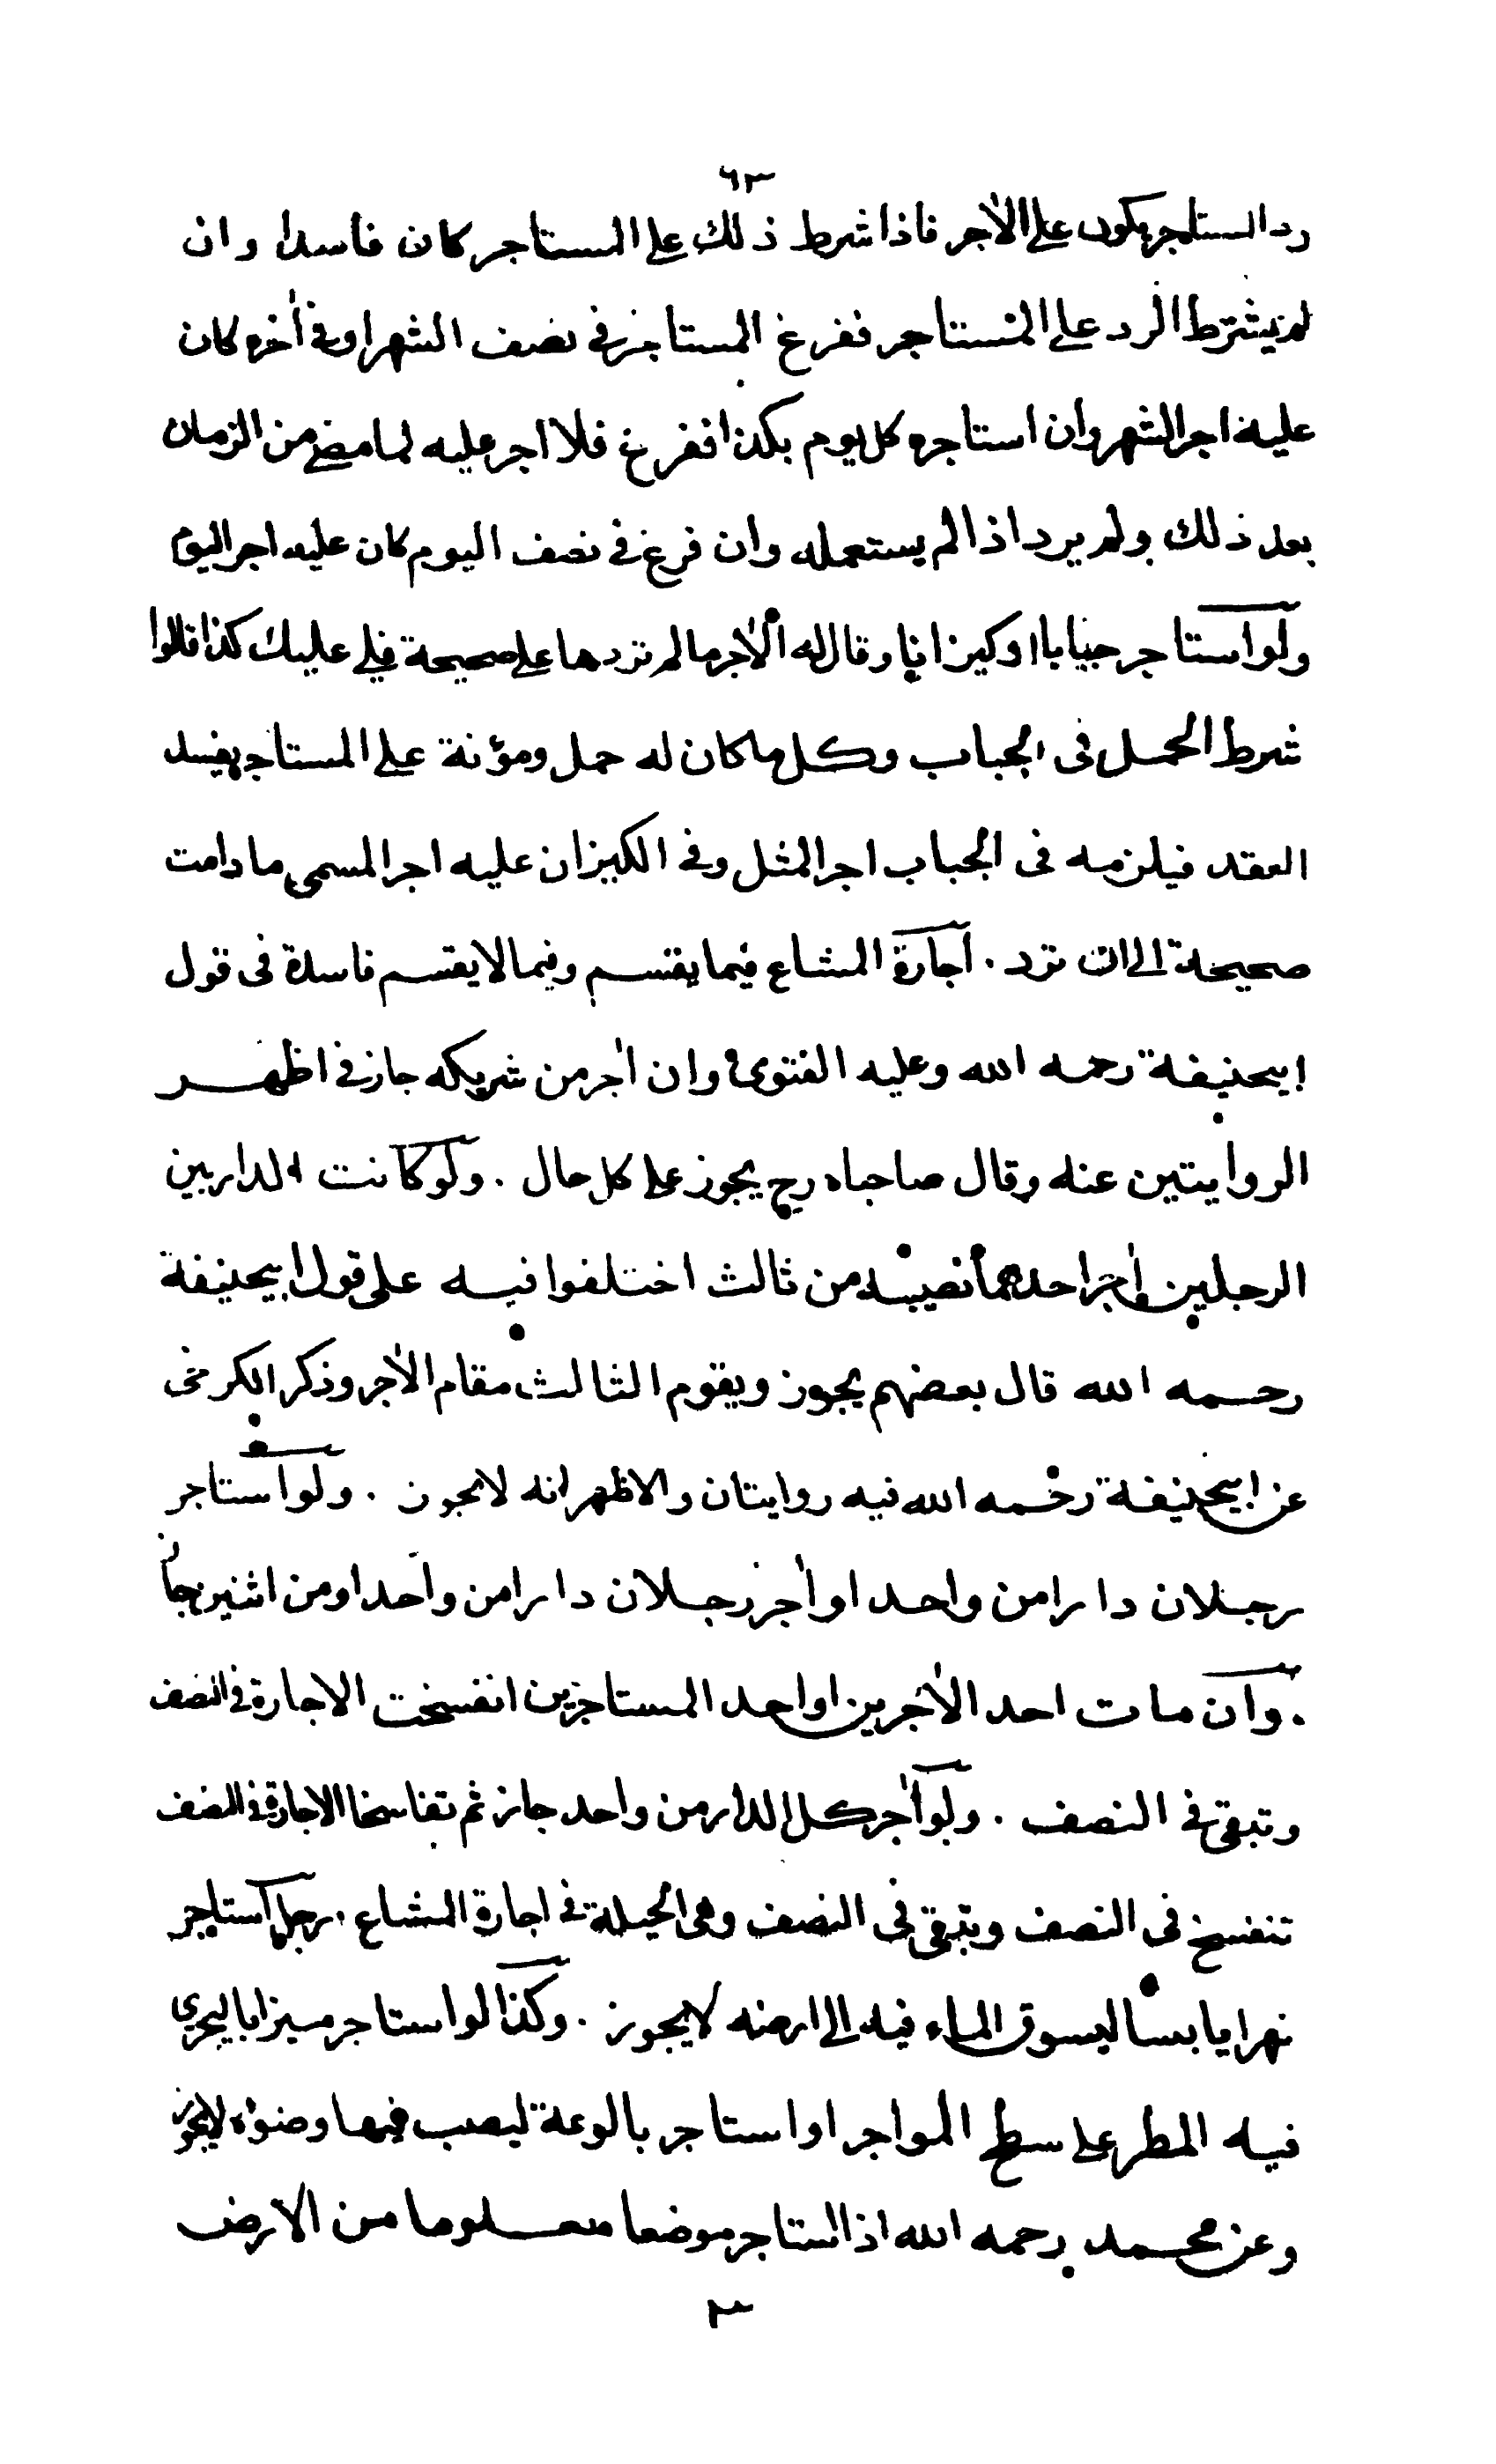 ٦٣
رد المستاجر يكون على الاٰجر فاذا شرط ذلك على المستاجر كان فاسدا وان
لم يشترط الرد على المستاجر ففرغ المستاجر فى نصف الشهر او فى اٰخره كان
عليه اجر الشهر وان استاجره كل يوم بكذا ففرغ فلا اجر عليه لما مضى من الزمان
بعد ذلك ولم يرد اذا لم يستعمله وان فرغ فى نصف اليوم كان عليه اجر اليوم
ولو استاجر جبابا او كيزانا وقال له الاٰجر ما لم تردها على صحيحة فلى عليك كذا قالوا
شرط الحمل فى الجباب وكل ما كان له حمل ومؤنة على المستاجر يفسد
العقد فيلزمه فى الجباب اجر المثل وفى الكيزان عليه اجر المسمى ما دامت
صحيحة الى ان ترد . اجارة المشاع فيما يقسم وفيما لا يقسم فاسدة فى قول
ابيحنيفة رحمه الله وعليه الفتوى وان اٰجر من شريكه جاز فى اظهر
الروايتين عنه وقال صاحباه رح يجوز على كل حال . ولو كانت الدار بين
الرجلين واٰجر احدهما نصيبه من ثالث اختلفوا فيه على قول ابيحنيفة
رحمه الله قال بعضهم يجوز ويقوم الثالث مقام الاٰجر وذكر الكرخى
عن ابيحنيفة رحمه الله فيه روايتان والاظهر انه لا يجوز . ولو استاجر
رجلان دارا من واحد او اٰجر رجلان دارا من واحد او من اثنين جاز
. وان مات احد الاٰجرين او احد المستاجرين انفسخت الاجارة فى النصف
وتبقى فى النصف . ولو اٰجر كل الدار من واحد جاز ثم تفاسخا الاجارة فى النصف
تنفسخ فى النصف ويبقى فى النصف وهى الحيلة فى اجارة المشاع . رجل استاجر
نهرا يابسا ليسوق الماء فيه الى ارضه لا يجوز . وكذا لو استاجر ميزابا ليجرى
فيه المطر على سطح المواجر او استاجر بالوعة ليصب فيها وضوءه لا يجوز
وعن محمد رحمه الله اذا استاجر موضعا معلوما من الارض